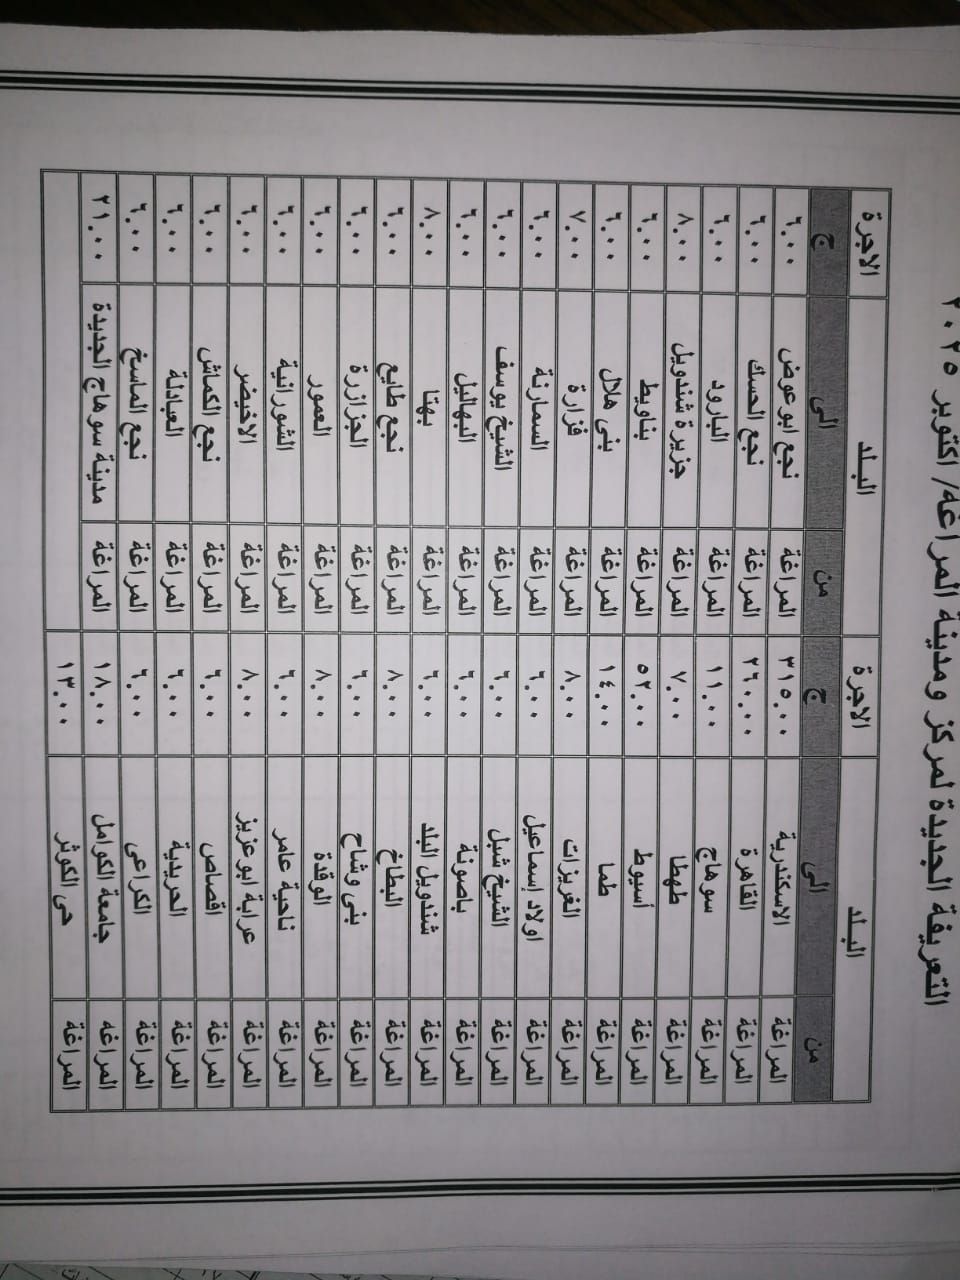 التعريفة الجديدة لمركز ومدينة المراغة/ اكتوبر ٢٠٢٥
البلد الاجرة البلد الاجرة
من الى ج من الى ج
المراغة الاسكندرية ٣١٥.٠٠ المراغة نجع ابوعوض ٦.٠٠
المراغة القاهرة ٢٦٠.٠٠ المراغة نجع الحسك ٦.٠٠
المراغة سوهاج ١١.٠٠ المراغة البارود ٦.٠٠
المراغة طهطا ٧.٠٠ المراغة جزيرة شندويل ٨.٠٠
المراغة أسيوط ٥٢.٠٠ المراغة بناويط ٦.٠٠
المراغة طما ١٤.٠٠ المراغة بنى هلال ٦.٠٠
المراغة الغريزات ٨.٠٠ المراغة فزارة ٧.٠٠
المراغة اولاد إسماعيل ٦.٠٠ المراغة السمارنة ٦.٠٠
المراغة الشيخ شبل ٦.٠٠ المراغة الشيخ يوسف ٦.٠٠
المراغة باصونة ٦.٠٠ المراغة البهاليل ٦.٠٠
المراغة شندويل البلد ٦.٠٠ المراغة بهتا ٨.٠٠
المراغة البطاخ ٨.٠٠ المراغة نجع طايع ٦.٠٠
المراغة بنى وشاح ٦.٠٠ المراغة الجزازرة ٦.٠٠
المراغة الوقدة ٨.٠٠ المراغة العمور ٦.٠٠
المراغة ناحية عامر ٦.٠٠ المراغة الشورانية ٦.٠٠
المراغة عرابة ابو عزيز ٨.٠٠ المراغة الاخيضر ٦.٠٠
المراغة اقصاص ٦.٠٠ المراغة نجع الكماش ٦.٠٠
المراغة الحريدية ٦.٠٠ المراغة العبادلة ٦.٠٠
المراغة الكراعى ٦.٠٠ المراغة نجع الماسخ ٦.٠٠
المراغه جامعة الكوامل ١٨.٠٠ المراغة مدينة سوهاج الجديدة ٢١.٠٠
المراغة حى الكوثر ١٣.٠٠